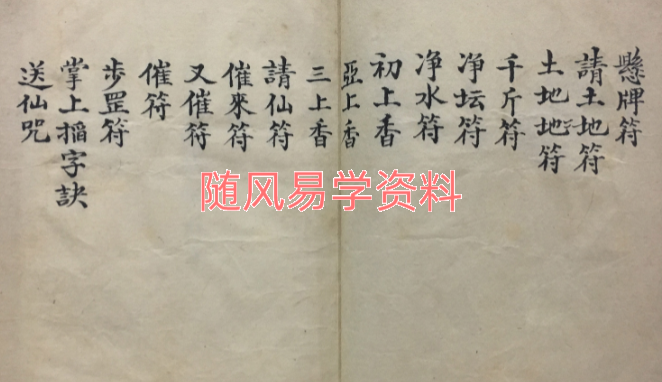 懸牌符
請土地符
土地地符
千斤符
净坛符
净水符
初上香
亞上香
三上香
請仙符
催來符
又催符
催符
步罡符
掌上掐字訣
送仙咒
随风易学资料